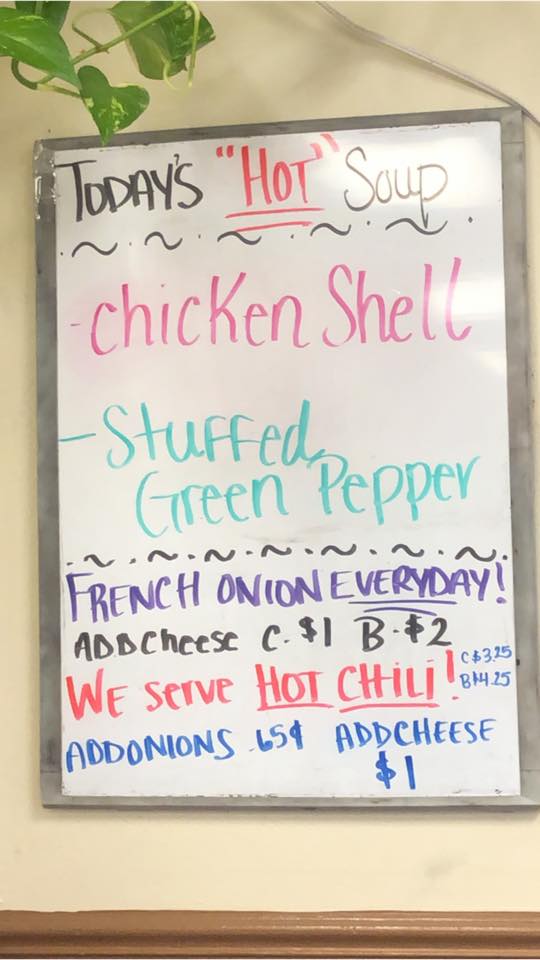 TODAY'S "HOT" Soup
-chicken Shell
-Stuffed
Green Pepper
FRENCH ONION EVERYDAY!
ADD Cheese C-$1 B-$2
WE serve HOT CHILI! C $3.25
B $4.25
ADD ONIONS .65¢ ADD CHEESE
$1